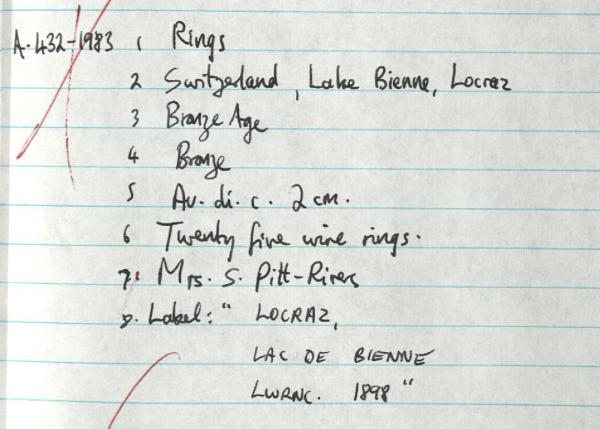 A.432-1983 1 Rings
2 Switzerland, Lake Bienne, Locraz
3 Bronze Age
4 Bronze
5 Av. di. c. 2 cm.
6 Twenty five wire rings.
7. Mrs. S. Pitt-Rivers
8. Label: " LOCRAZ,
LAC DE BIENNE
LWRNC. 1898 "